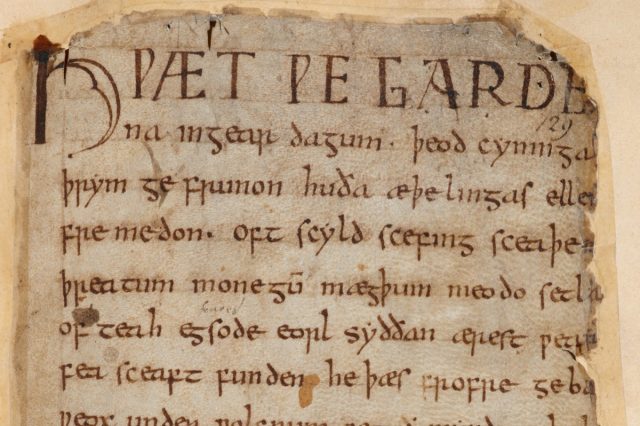 HǷÆT ǷE GARDE
129
na ingear dagum · þeod cyninga
þrym ge frunon huða æþelingas elle
fre medon · oft scyld scefing sceaþe
þreatum monegū mægþum meodo setla
of teah egsode eorl syððan ærest ƿear
fea sceaft funden he þæs frofre geba
ƿeox under ƿolcnum